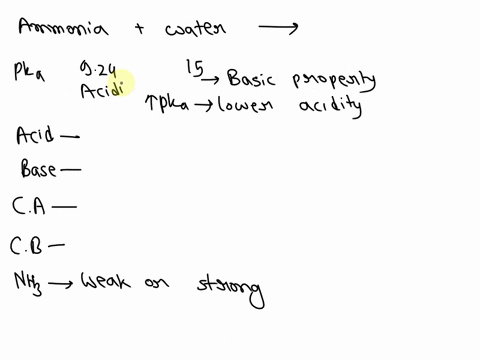 Ammonia + water →
Pka 9.24 15 → Basic property
Acidi ↑pka → lower acidity
Acid —
Base —
C.A —
C.B —
NH3 → weak or strong